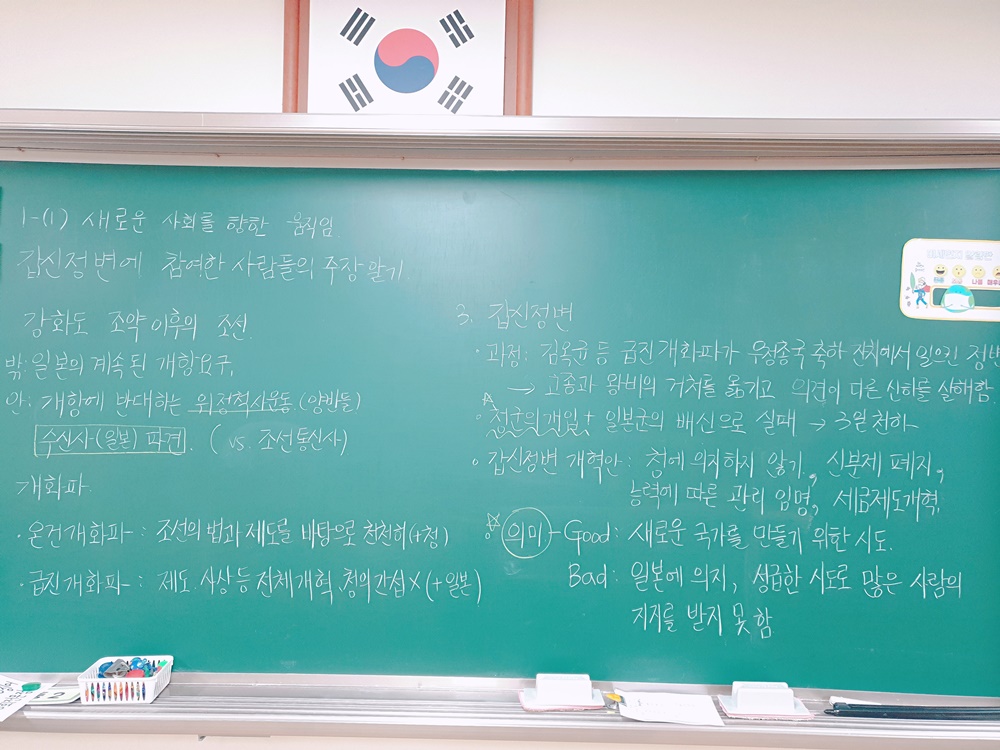 1-(1) 새로운 사회를 향한 움직임.
갑신정변에 참여한 사람들의 주장 알기.
강화도 조약 이후의 조선.
밖: 일본의 계속된 개항요구,
안: 개항에 반대하는 위정척사운동(양반들)
수신사(일본) 파견. ( vs. 조선통신사)
개화파
· 온건개화파 - : 조선의 법과 제도를 바탕으로 천천히 (+청)
· 급진개화파 - : 제도. 사상 등 전체 개혁, 청의 간섭 X (+일본)
3. 갑신정변
· 과정: 김옥균 등 급진개화파가 우정총국 축하 잔치에서 일으킨 정변
→ 고종과 왕비의 거처를 옮기고 의견이 다른 신하를 살해함.
☆ 청군의 개입 + 일본군의 배신으로 실패 → 3일천하
∘ 갑신정변 개혁안: 청에 의지하지 않기, 신분제 폐지,
능력에 따른 관리 임명, 세금제도개혁,
☆ 의미 - Good: 새로운 국가를 만들기 위한 시도.
Bad: 일본에 의지, 성급한 시도로 많은 사람의
지지를 받지 못함